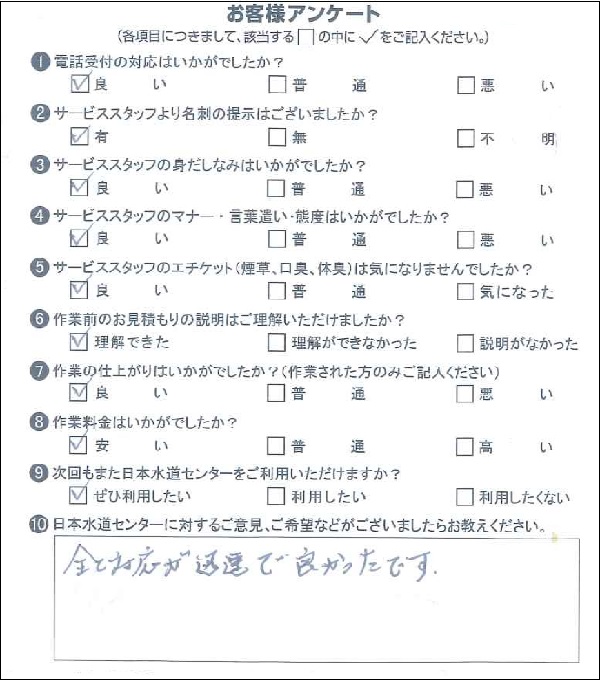 お客様アンケート
(各項目につきまして、該当する□の中に✓をご記入ください。)
❶ 電話受付の対応はいかがでしたか?
☑ 良い □ 普通 □ 悪い
❷ サービススタッフより名刺の提示はございましたか?
☑ 有 □ 無 □ 不明
❸ サービススタッフの身だしなみはいかがでしたか?
☑ 良い □ 普通 □ 悪い
❹ サービススタッフのマナー・言葉遣い・態度はいかがでしたか?
☑ 良い □ 普通 □ 悪い
❺ サービススタッフのエチケット(煙草、口臭、体臭)は気になりませんでしたか?
☑ 良い □ 普通 □ 気になった
❻ 作業前のお見積もりの説明はご理解いただけましたか?
☑ 理解できた □ 理解ができなかった □ 説明がなかった
❼ 作業の仕上がりはいかがでしたか?(作業された方のみご記入ください)
☑ 良い □ 普通 □ 悪い
❽ 作業料金はいかがでしたか?
☑ 安い □ 普通 □ 高い
❾ 次回もまた日本水道センターをご利用いただけますか?
☑ ぜひ利用したい □ 利用したい □ 利用したくない
❿ 日本水道センターに対するご意見、ご希望などがございましたらお教えください。
全て対応が迅速で良かったです.